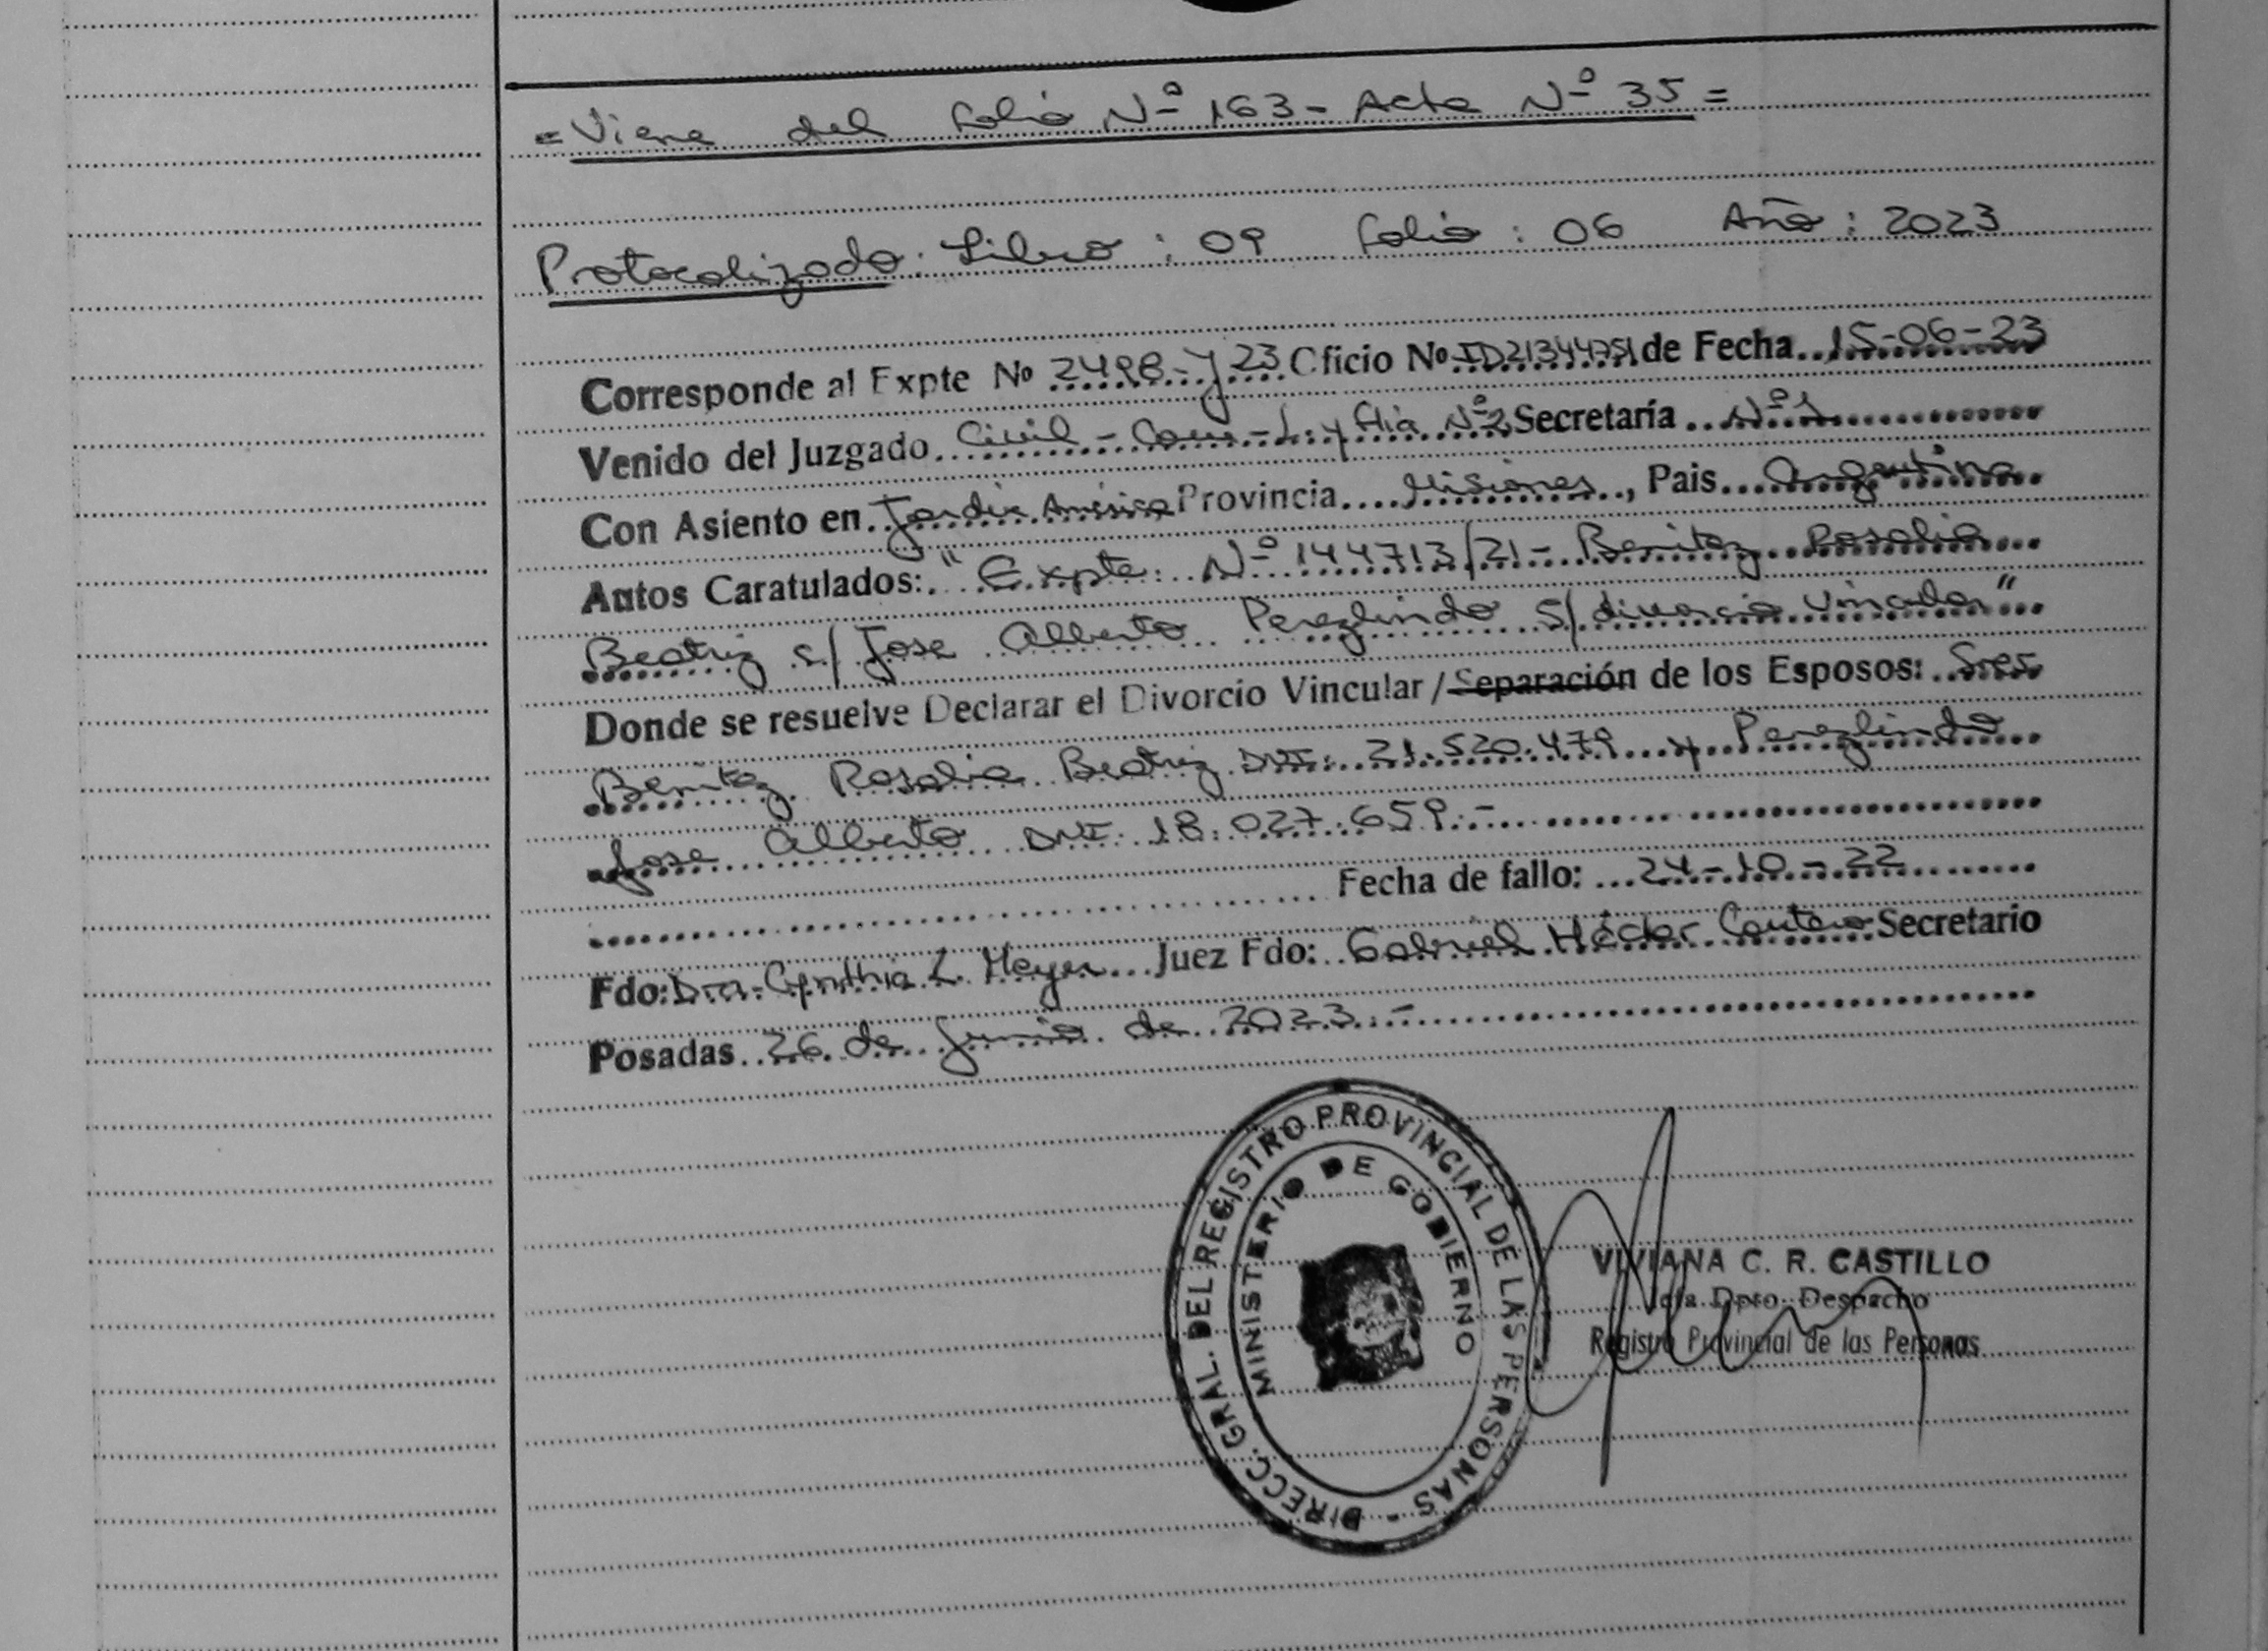 = Viene del folio Nº 163 - Acta Nº 35 =
Protocolizado: Libro: 09 folio: 06 Año: 2023
Corresponde al Expte Nº 2498-J-23 Oficio Nº ID21344751 de Fecha 15-06-23
Venido del Juzgado Civil - Com - L. y flia Nº2 Secretaría Nº 1
Con Asiento en Jardín América Provincia Misiones, Pais Argentina
Autos Caratulados: "Expte. Nº 144713/21 - Benitez Rosalia
Beatriz c/ Jose Alberto Perezlindo S/ divorcio Vincular"
Donde se resuelve Declarar el Divorcio Vincular / Separación de los Esposos: Sres
Benitez Rosalia Beatriz DNI: 21.520.479 y Perezlindo
Jose Alberto DNI: 18.027.659.-
Fecha de fallo: 24-10-22
Fdo: Dra. Cynthia L. Meyer Juez Fdo: Gabriel Héctor Secretario
Posadas 26 de Junio de 2023.-
DIRECC. GRAL. DEL REGISTRO PROVINCIAL DE LAS PERSONAS -
MINISTERIO DE GOBIERNO
VIVIANA C. R. CASTILLO
Jefa Dpto. Despacho
Registro Provincial de las Personas